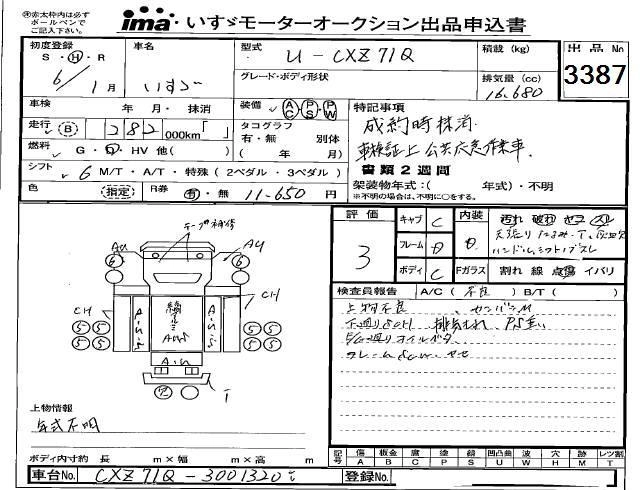 ※赤太枠内は必ず
ボールペンで
ご記入下さい。
ima いすゞモーターオークション出品申込書
初度登録
S・H・R
6/1月
車名
いすゞ
型式
U-CXZ71Q
グレード・ボディ形状
積載(kg)
排気量(cc)
16,680
出品No
3387
車検 年 月・抹消
装備 AC PS PW
特記事項
成約時抹消
車検証上 公共応急作業車.
書類2週間
架装物年式:( 年式)・不明
※不明の場合は、不明に○をする。
走行 B 282,000km「 」
タコグラフ
有・無 別体
( 年 月)
燃料 G・D・HV 他( )
シフト 6 M/T・A/T・特殊(2ペダル・3ペダル)
色 指定
R券 有・無 11-650円
評価
3
キャブ C
フレーム D
ボディ C
内装 D
汚れ 破れ セコ スレ
天張りたるみ・T、
ハンドル、シフトノブスレ
Fガラス 割れ 線 点傷 イバリ
検査員報告 A/C(不良)B/T( )
上物不良
下廻りSOM 排気もれ
E/G廻りオイル
フレームSOM
テープ補修
AU
AU
6
6
CH
CH
A・U・S
A・U・S
AUS
A・U
5 5 5 5
5 5 5 5
穴
T
上物情報
年式不明
ボディ内寸約 長 m×幅 m×高 m
記号 傷 A 板金 B 腐 C 塗 P 錆 S 凹凸曲 U 波 W 穴 H 跡 M レンズ割 T
車台No. CXZ71Q-3001320
登録No.